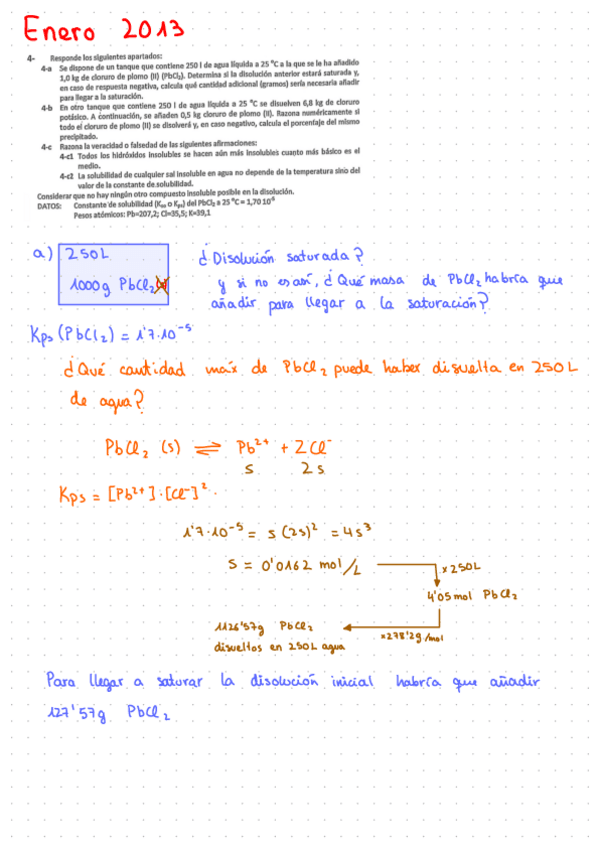 Enero 2013
4- Responde los siguientes apartados:
4-a Se dispone de un tanque que contiene 250 l de agua líquida a 25 ºC a la que se le ha añadido
1,0 kg de cloruro de plomo (II) (PbCl₂). Determina si la disolución anterior estará saturada y,
en caso de respuesta negativa, calcula qué cantidad adicional (gramos) sería necesaria añadir
para llegar a la saturación.
4-b En otro tanque que contiene 250 l de agua líquida a 25 ºC se disuelven 6,8 kg de cloruro
potásico. A continuación, se añaden 0,5 kg cloruro de plomo (II). Razona numéricamente si
todo el cloruro de plomo (II) se disolverá y, en caso negativo, calcula el porcentaje del mismo
precipitado.
4-c Razona la veracidad o falsedad de las siguientes afirmaciones:
4-c1 Todos los hidróxidos insolubles se hacen aún más insolubles cuanto más básico es el
medio.
4-c2 La solubilidad de cualquier sal insoluble en agua no depende de la temperatura sino del
valor de la constante de solubilidad.
Considerar que no hay ningún otro compuesto insoluble posible en la disolución.
DATOS: Constante de solubilidad (Kₚₛ o Kₚₛ) del PbCl₂ a 25 ºC = 1,70 10⁻⁵
Pesos atómicos: Pb=207,2; Cl=35,5; K=39,1
a) 250L ¿Disolución saturada?
1000g PbCl₂ y si no es así, ¿Qué masa de PbCl₂ habría que
añadir para llegar a la saturación?
Kps (PbCl₂) = 1'7·10⁻⁵
¿Qué cantidad máx de PbCl₂ puede haber disuelta en 250L
de agua?
PbCl₂ (s) ⇌ Pb²⁺ + 2Cl⁻
s 2s
Kps = [Pb²⁺]·[Cl⁻]².
1'7·10⁻⁵ = s (2s)² = 4s³
s = 0'0162 mol/L
x250L
4'05 mol PbCl₂
1126'57g PbCl₂
x278'2g/mol
disueltos en 250L agua
Para llegar a saturar la disolución inicial habría que añadir
127'57g PbCl₂